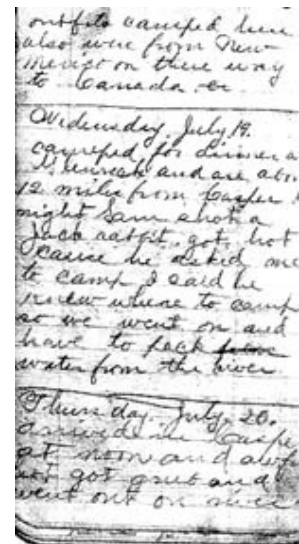 outfits camped here
also were from New
mexico on there way
to Canada
Wednesday, July 19.
camped for dinner a
and are abo
12 miles from Casper
night Sam shot a
Jack rabbit, got hot
cause he asked me
to camp I said he
knew where to camp
so we went on and
have to pack
water from the river
Thursday. July. 20.
arrived in Caspe
at noon and awf
hot got grub and
went out on river